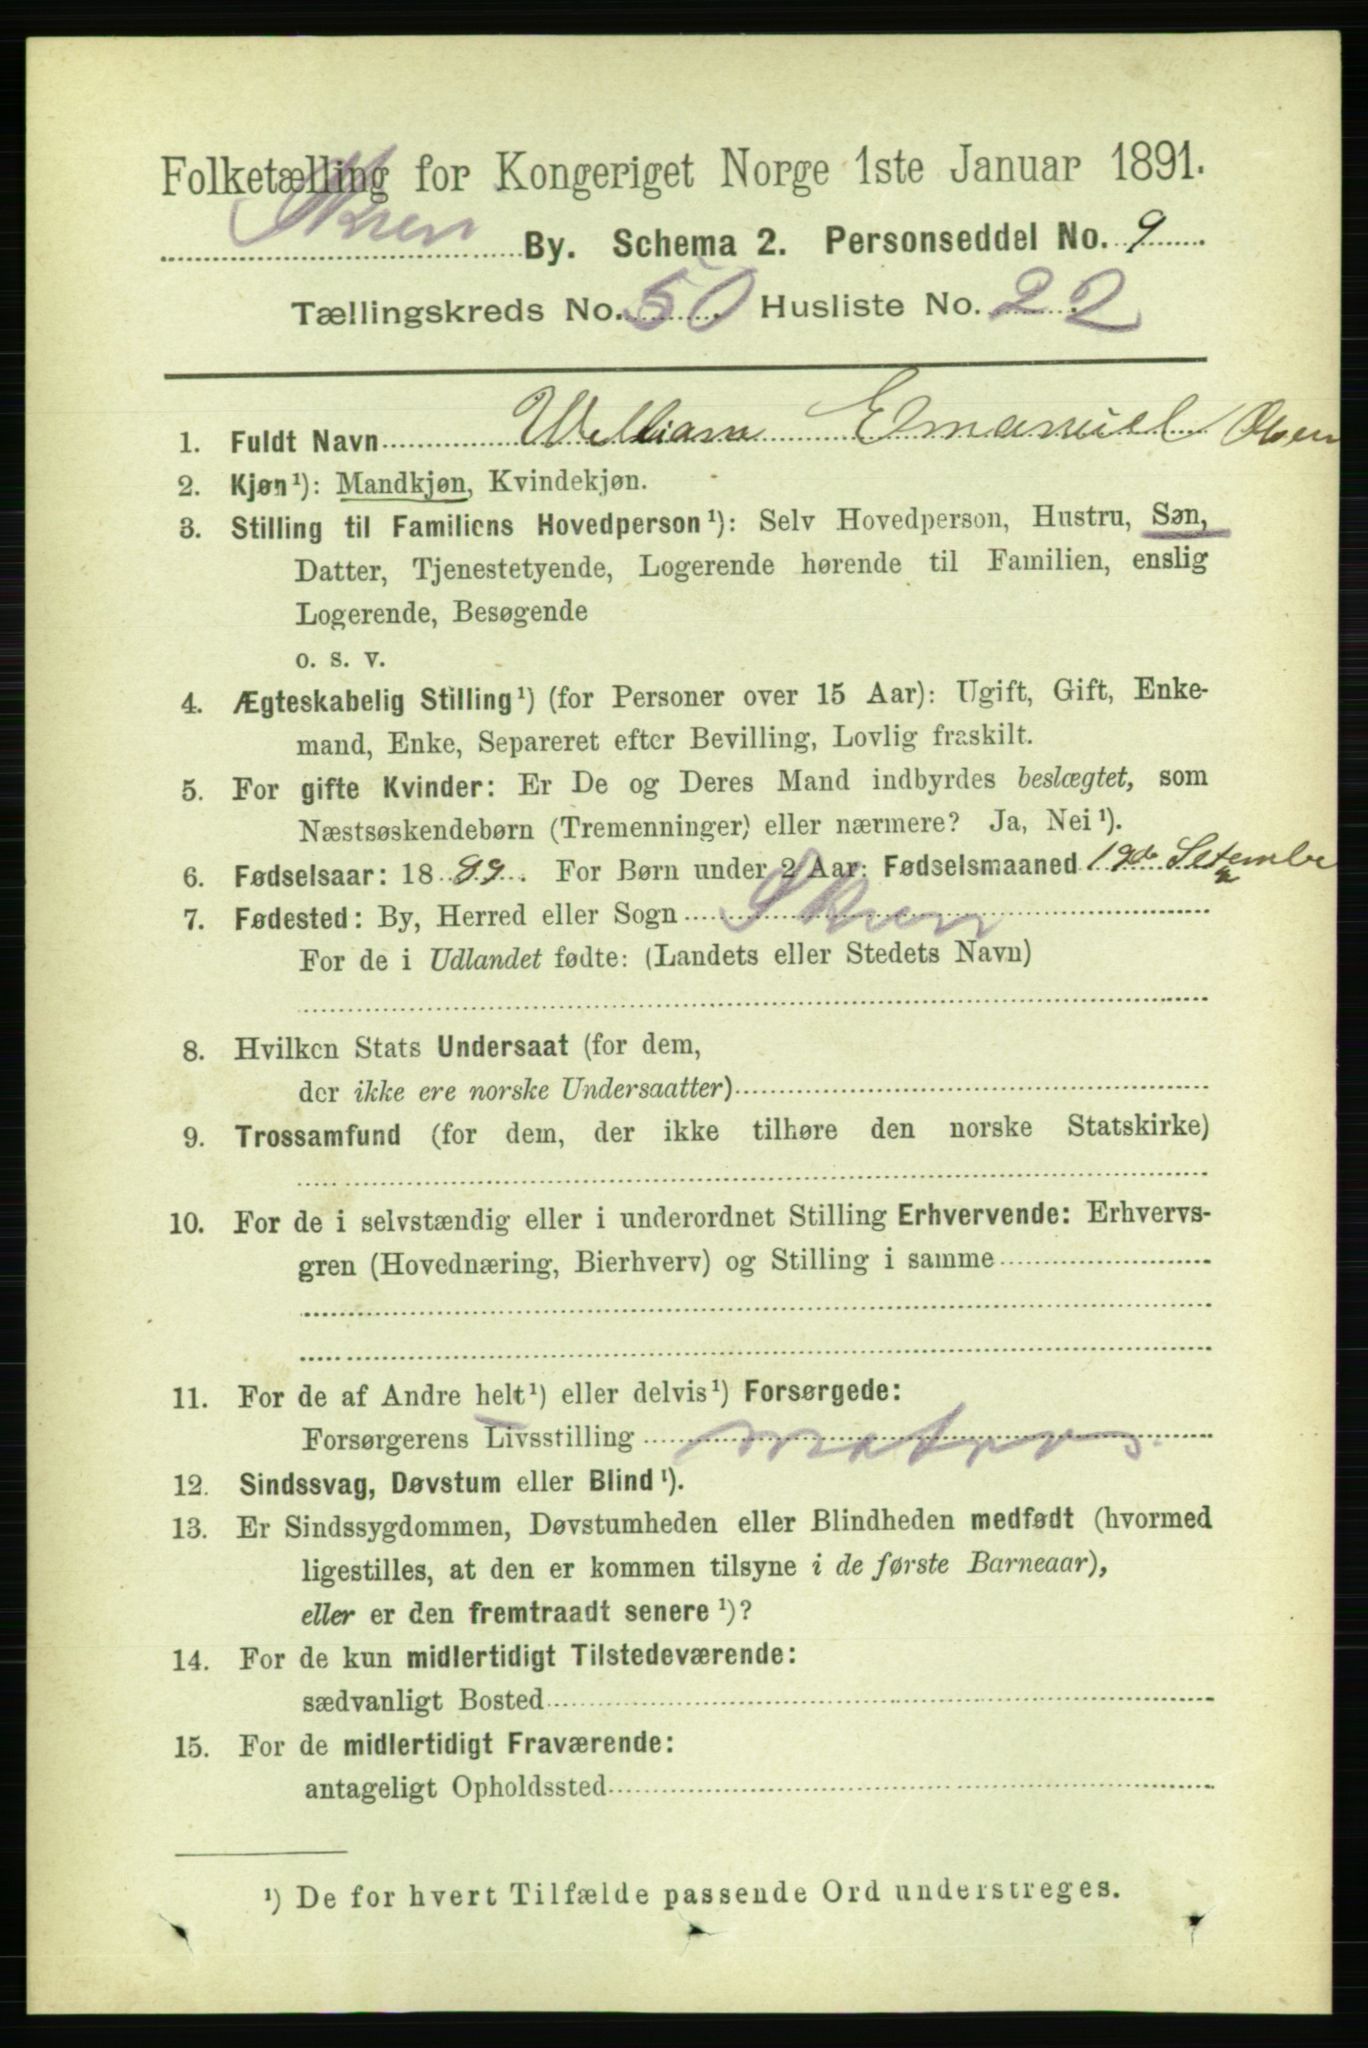 Folketælling for Kongeriget Norge 1ste Januar 1891.
Skien By. Schema 2. Personseddel No. 9
Tællingskreds No. 50 Husliste No. 22
1. Fuldt Navn William Emanuel Olsen
2. Kjøn¹): Mandkjøn, Kvindekjøn.
3. Stilling til Familiens Hovedperson¹): Selv Hovedperson, Hustru, Søn,
Datter, Tjenestetyende, Logerende hørende til Familien, enslig
Logerende, Besøgende
o. s. v.
4. Ægteskabelig Stilling¹) (for Personer over 15 Aar): Ugift, Gift, Enke-
mand, Enke, Separeret efter Bevilling, Lovlig fraskilt.
5. For gifte Kvinder: Er De og Deres Mand indbyrdes beslægtet, som
Næstsøskendebørn (Tremenninger) eller nærmere? Ja, Nei¹).
6. Fødselsaar: 1889. For Børn under 2 Aar: Fødselsmaaned 19de
7. Fødested: By, Herred eller Sogn Skien
For de i Udlandet fødte: (Landets eller Stedets Navn)
8. Hvilken Stats Undersaat (for dem,
der ikke ere norske Undersaatter)
9. Trossamfund (for dem, der ikke tilhøre den norske Statskirke)
10. For de i selvstændig eller i underordnet Stilling Erhvervende: Erhvervs-
gren (Hovednæring, Bierhverv) og Stilling i samme
11. For de af Andre helt¹) eller delvis¹) Forsørgede:
Forsørgerens Livsstilling matros
12. Sindssvag, Døvstum eller Blind¹).
13. Er Sindssygdommen, Døvstumheden eller Blindheden medfødt (hvormed
ligestilles, at den er kommen tilsyne i de første Barneaar),
eller er den fremtraadt senere¹)?
14. For de kun midlertidigt Tilstedeværende:
sædvanligt Bosted
15. For de midlertidigt Fraværende:
antageligt Opholdssted
¹) De for hvert Tilfælde passende Ord understreges.